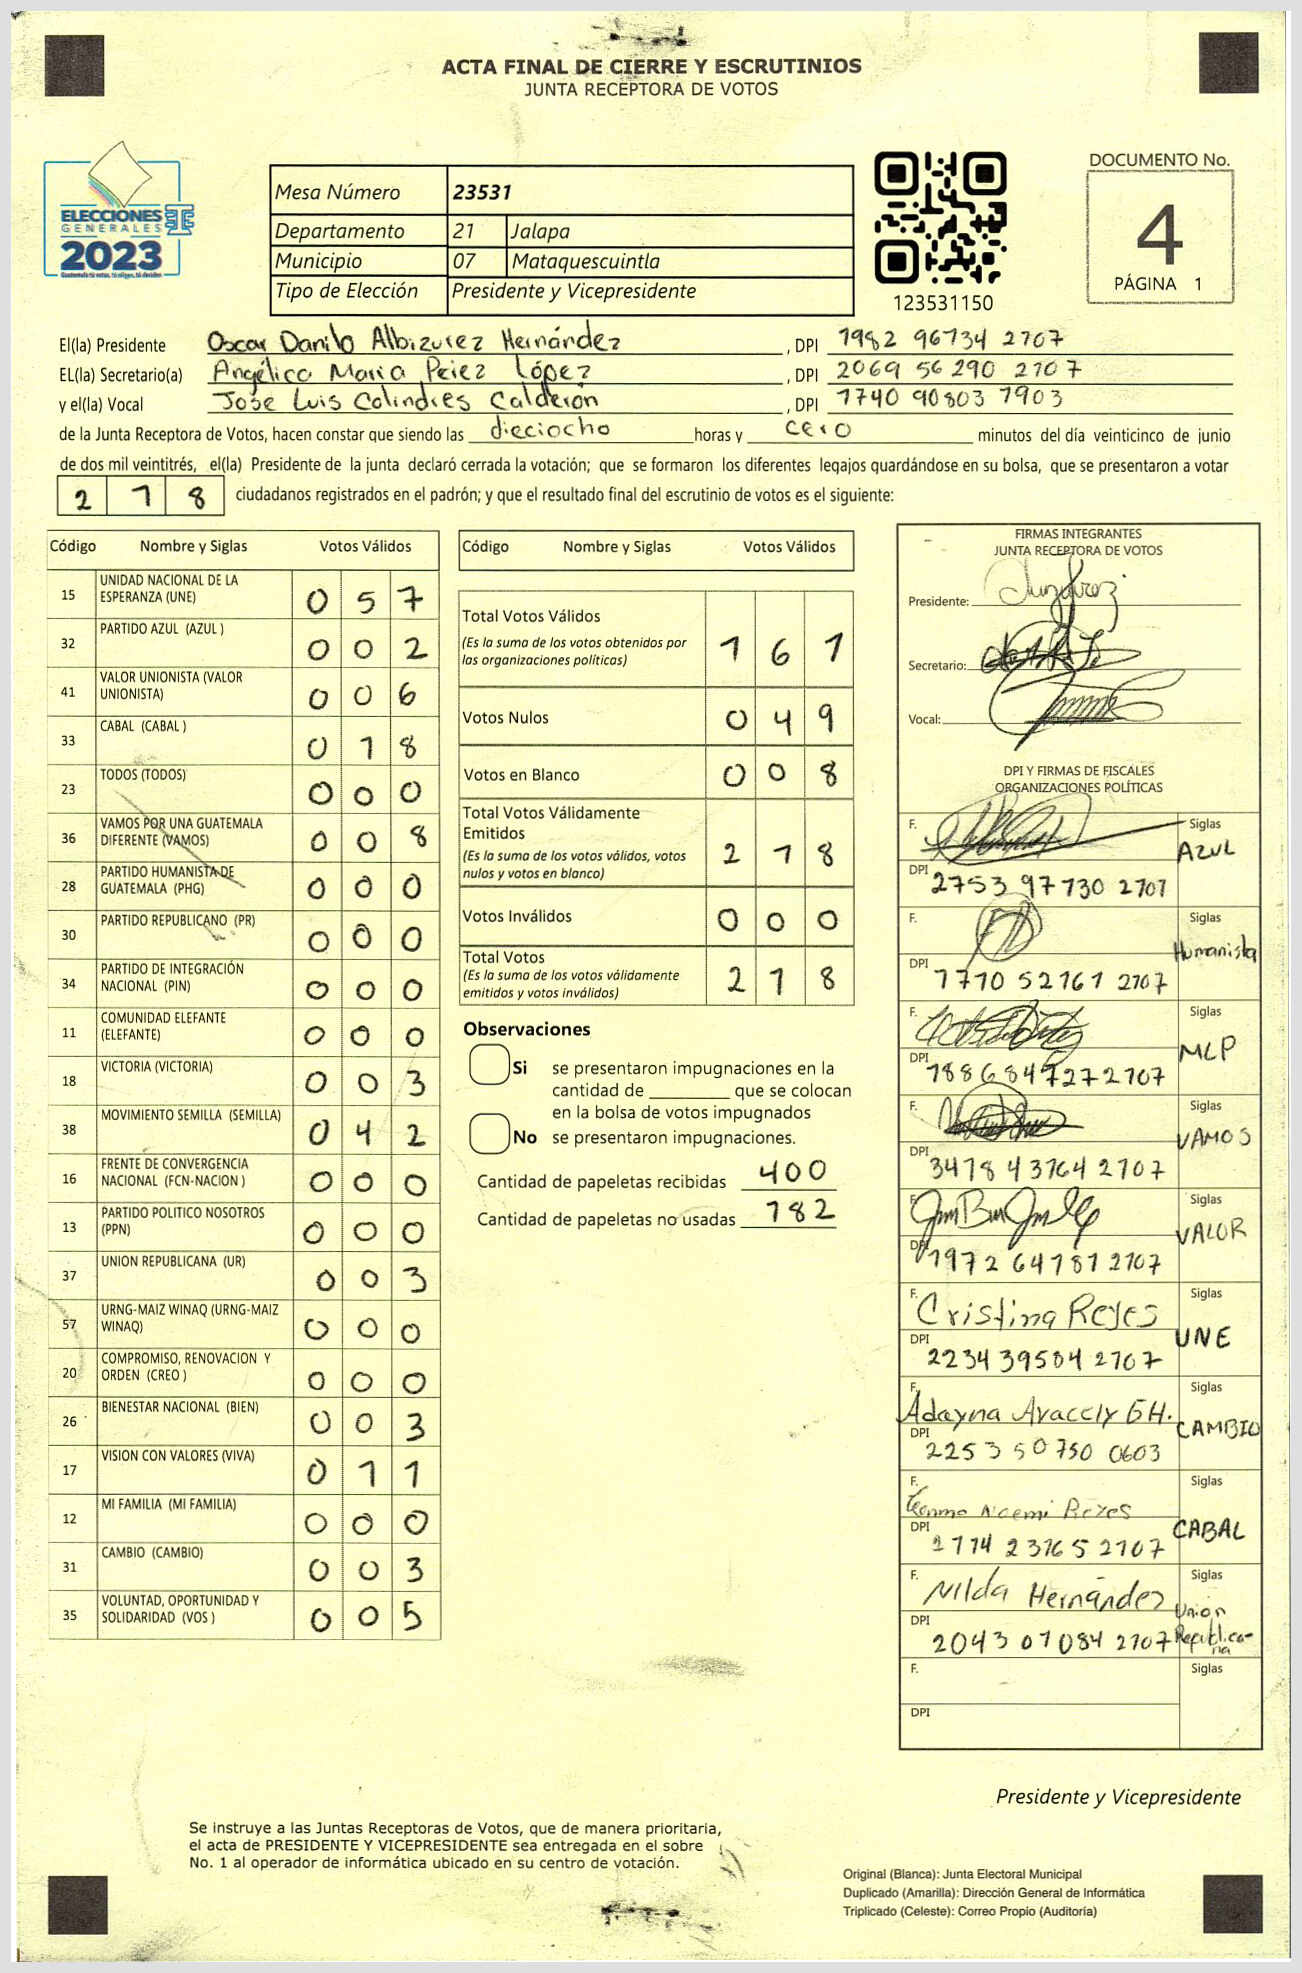 ACTA FINAL DE CIERRE Y ESCRUTINIOS
JUNTA RECEPTORA DE VOTOS
ELECCIONES
GENERALES
2023
Mesa Número 23531
Departamento 21 Jalapa
Municipio 07 Mataquescuintla
Tipo de Elección Presidente y Vicepresidente
123531150
DOCUMENTO No.
4
PÁGINA 1
El(la) Presidente Oscar Danilo Albizurez Hernández , DPI 1982 96134 2107
EL(la) Secretario(a) Angélica Maria Perez López , DPI 2069 56290 2107
y el(la) Vocal Jose Luis Colindres Calderón , DPI 1740 90803 1903
de la Junta Receptora de Votos, hacen constar que siendo las dieciocho horas y cero minutos del día veinticinco de junio
de dos mil veintitrés, el(la) Presidente de la junta declaró cerrada la votación; que se formaron los diferentes legajos guardándose en su bolsa, que se presentaron a votar
2 1 8 ciudadanos registrados en el padrón; y que el resultado final del escrutinio de votos es el siguiente:
Código Nombre y Siglas Votos Válidos
15 UNIDAD NACIONAL DE LA ESPERANZA (UNE) 0 5 7
32 PARTIDO AZUL (AZUL ) 0 0 2
41 VALOR UNIONISTA (VALOR UNIONISTA) 0 0 6
33 CABAL (CABAL ) 0 1 8
23 TODOS (TODOS) 0 0 0
36 VAMOS POR UNA GUATEMALA DIFERENTE (VAMOS) 0 0 8
28 PARTIDO HUMANISTA DE GUATEMALA (PHG) 0 0 0
30 PARTIDO REPUBLICANO (PR) 0 0 0
34 PARTIDO DE INTEGRACIÓN NACIONAL (PIN) 0 0 0
11 COMUNIDAD ELEFANTE (ELEFANTE) 0 0 0
18 VICTORIA (VICTORIA) 0 0 3
38 MOVIMIENTO SEMILLA (SEMILLA) 0 4 2
16 FRENTE DE CONVERGENCIA NACIONAL (FCN-NACION ) 0 0 0
13 PARTIDO POLITICO NOSOTROS (PPN) 0 0 0
37 UNION REPUBLICANA (UR) 0 0 3
57 URNG-MAIZ WINAQ (URNG-MAIZ WINAQ) 0 0 0
20 COMPROMISO, RENOVACION Y ORDEN (CREO ) 0 0 0
26 BIENESTAR NACIONAL (BIEN) 0 0 3
17 VISION CON VALORES (VIVA) 0 1 1
12 MI FAMILIA (MI FAMILIA) 0 0 0
31 CAMBIO (CAMBIO) 0 0 3
35 VOLUNTAD, OPORTUNIDAD Y SOLIDARIDAD (VOS ) 0 0 5
Código Nombre y Siglas Votos Válidos
Total Votos Válidos
(Es la suma de los votos obtenidos por
las organizaciones políticas) 1 6 1
Votos Nulos 0 4 9
Votos en Blanco 0 0 8
Total Votos Válidamente
Emitidos
(Es la suma de los votos válidos, votos
nulos y votos en blanco) 2 1 8
Votos Inválidos 0 0 0
Total Votos
(Es la suma de los votos válidamente
emitidos y votos inválidos) 2 1 8
Observaciones
Si se presentaron impugnaciones en la
cantidad de ________ que se colocan
en la bolsa de votos impugnados
No se presentaron impugnaciones.
Cantidad de papeletas recibidas 400
Cantidad de papeletas no usadas 182
FIRMAS INTEGRANTES
JUNTA RECEPTORA DE VOTOS
Presidente:
Secretario:
Vocal:
DPI Y FIRMAS DE FISCALES
ORGANIZACIONES POLÍTICAS
F. Siglas
AZUL
DPI 2753 97730 2107
F. Siglas
Humanista
DPI 1710 52161 2107
F. Siglas
MLP
DPI 1886 84127 2107
F. Siglas
VAMOS
DPI 3418 43164 2107
F. Siglas
VALOR
DPI 1972 64181 2107
F. Cristina Reyes Siglas
UNE
DPI 2234 39504 2107
F. Adayna Aracely G H. Siglas
CAMBIO
DPI 2253 50750 0603
F. Noemi Reyes Siglas
CABAL
DPI 1774 23165 2107
F. Nilda Hernández Siglas
Union Republicana
DPI 2043 01084 2107
F. Siglas
DPI
Presidente y Vicepresidente
Se instruye a las Juntas Receptoras de Votos, que de manera prioritaria,
el acta de PRESIDENTE Y VICEPRESIDENTE sea entregada en el sobre
No. 1 al operador de informática ubicado en su centro de votación.
Original (Blanca): Junta Electoral Municipal
Duplicado (Amarilla): Dirección General de Informática
Triplicado (Celeste): Correo Propio (Auditoría)